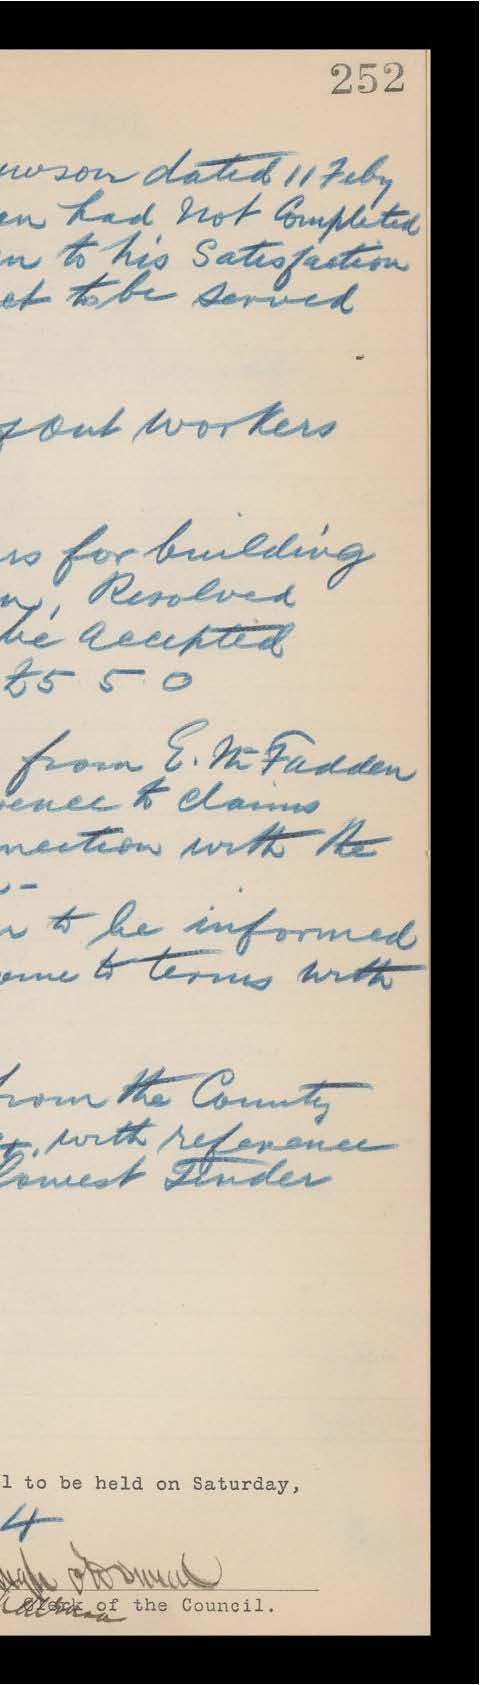 252
wson dated 11 Feby
en had Not Completed
n to his Satisfaction
ct to be served
out workers
rs for building
n, Resolved
be accepted
£5 5 0
from E. McFadden
rence to claims
nnection with the
to be informed
ome to terms with
from the County
with reference
lowest Tender
l to be held on Saturday,
4
Clerk of the Council.